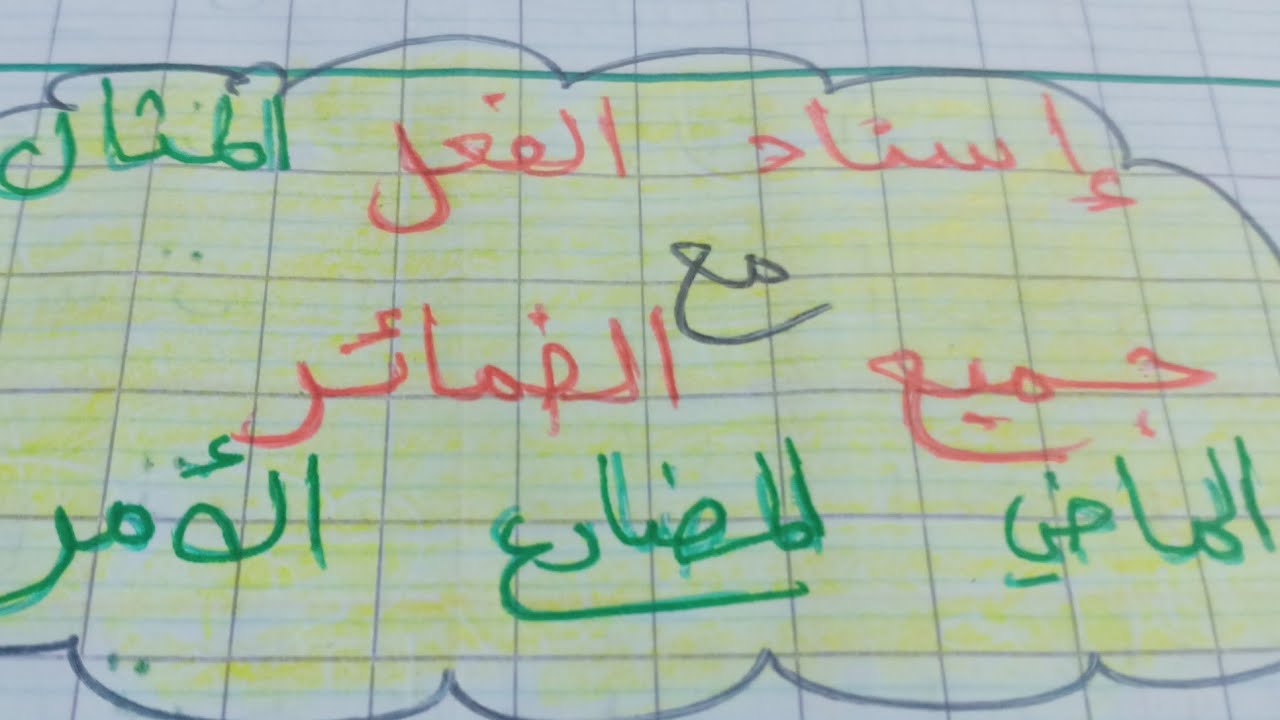 إسناد الفعل المثال
مع
جميع الضمائر
الماضي المضارع الأمر